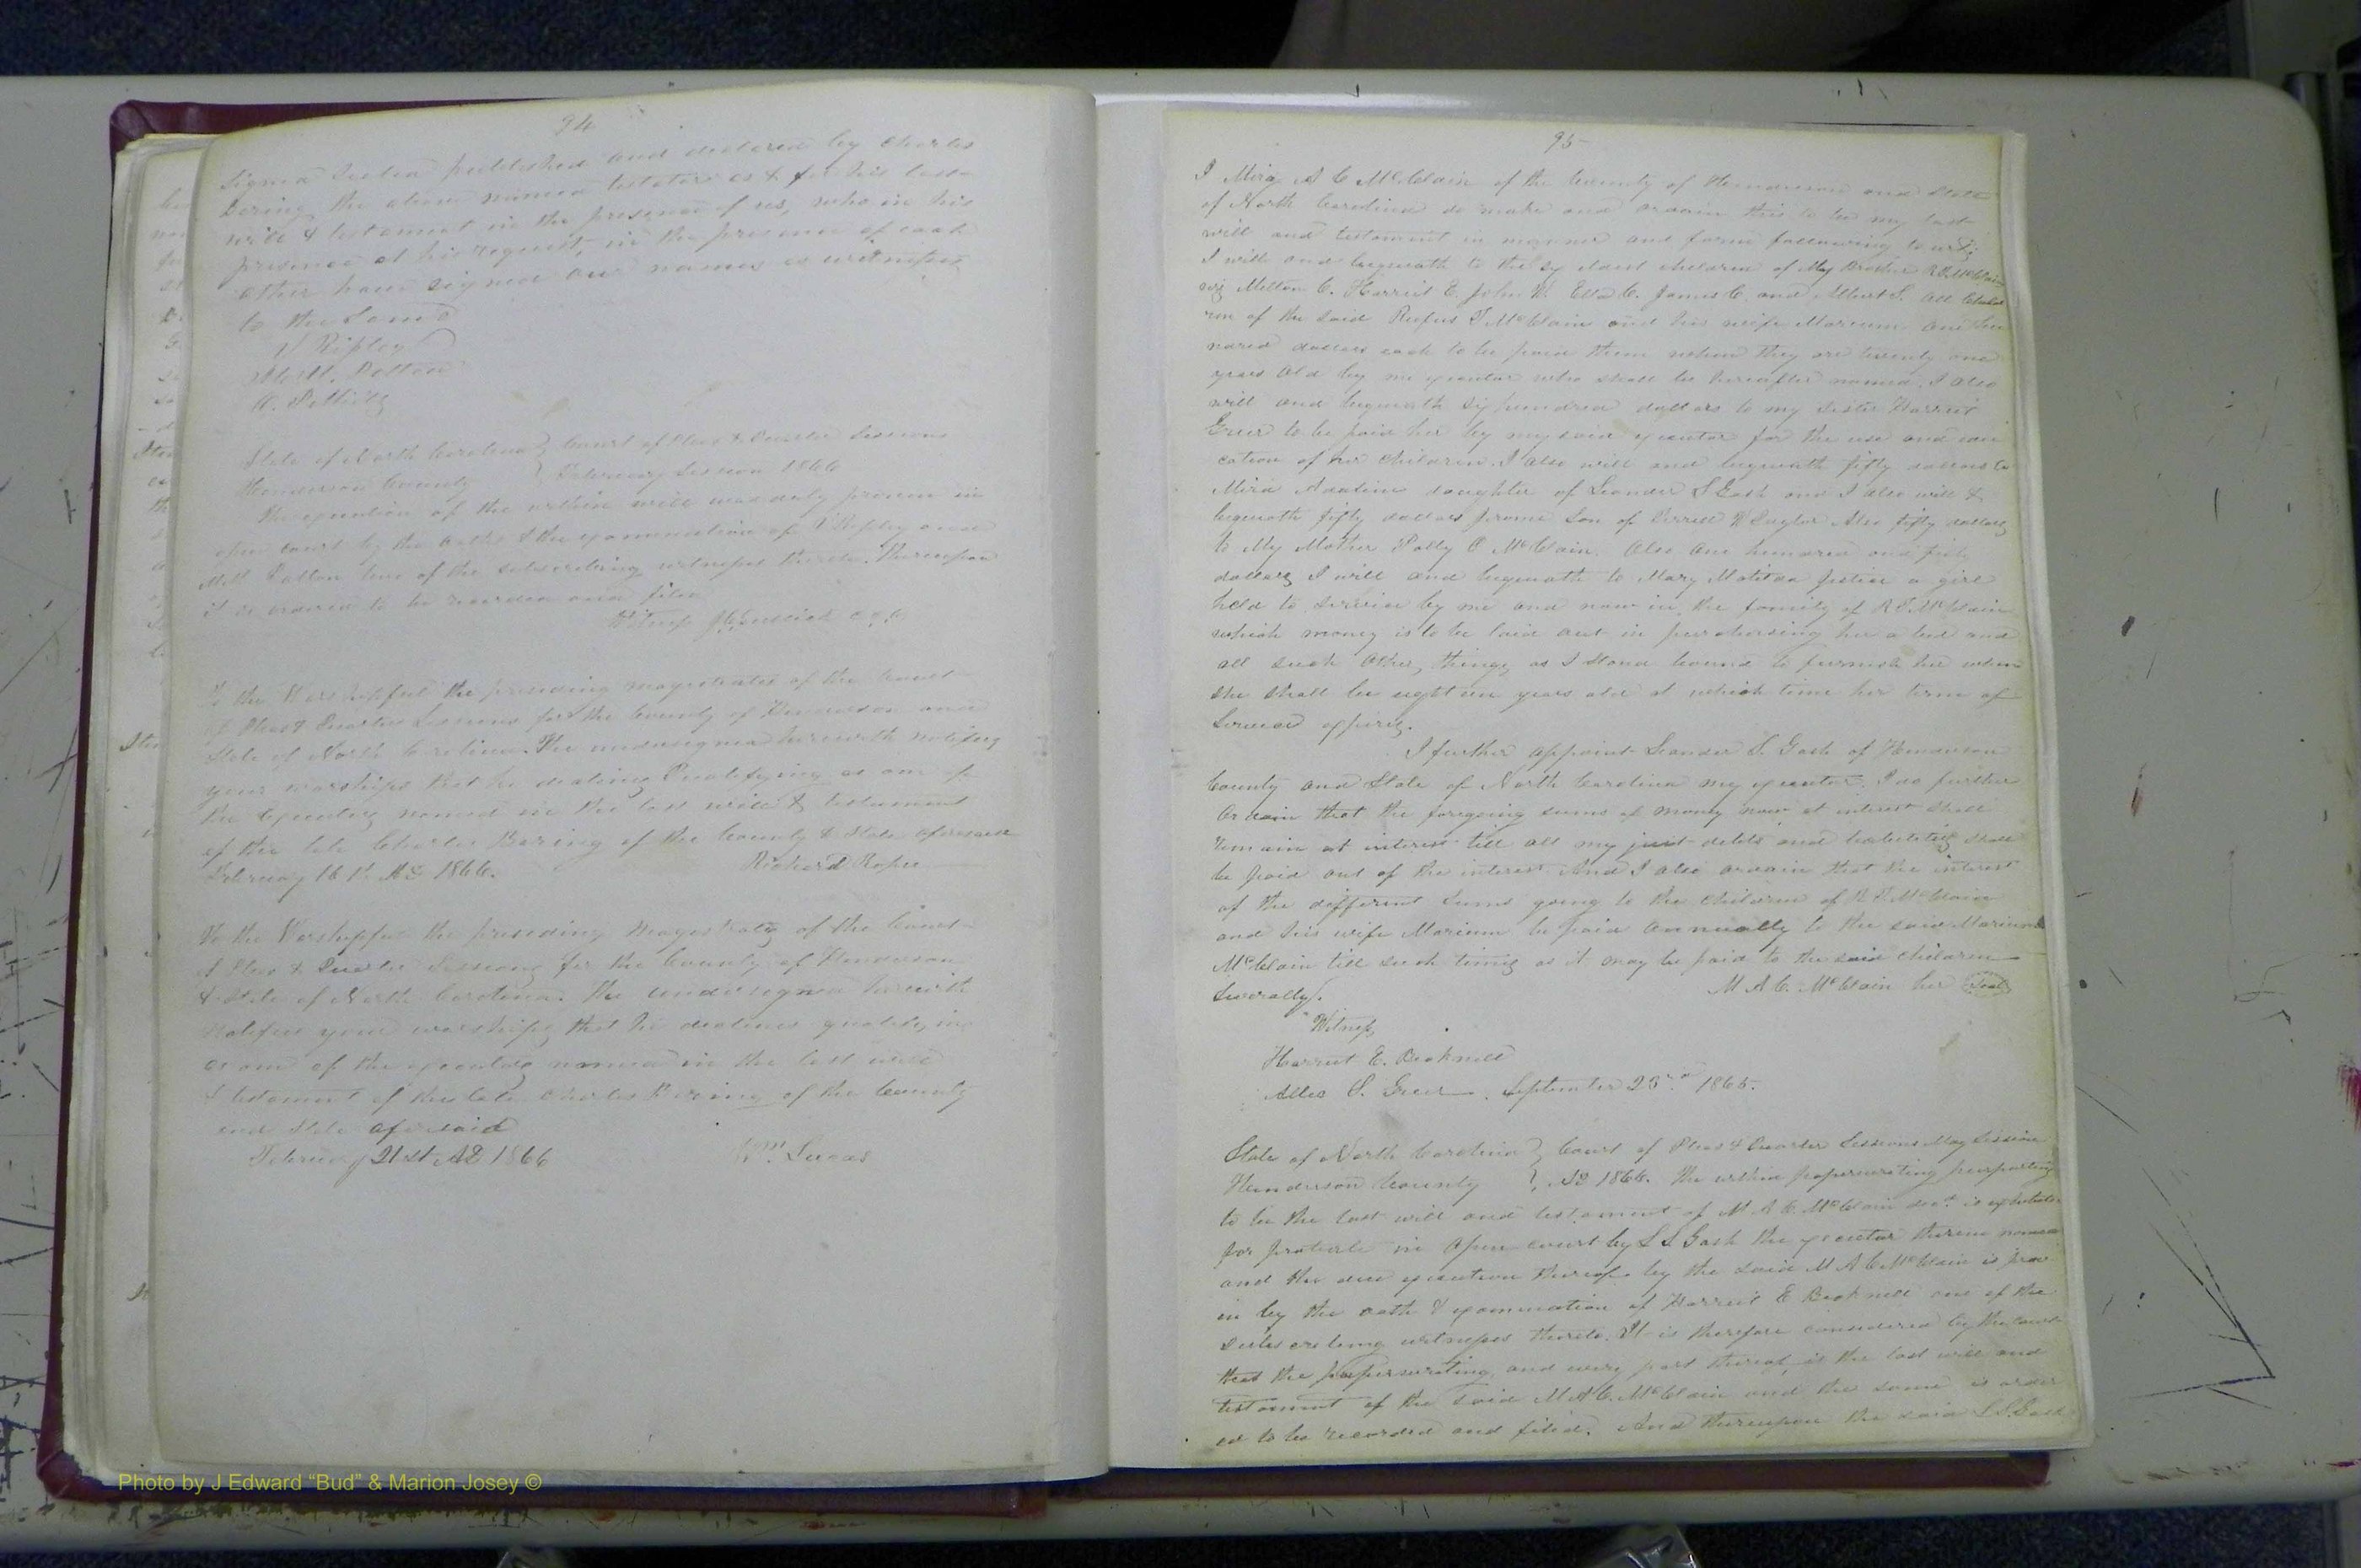 94
Signed Sealed published and declared by Charles
Baring the above named testator as & for his last
will & testament in the presence of us, who in his
presence at his request, in the presence of each
other have signed our names as witnesses
to the same
V Ripley
M. Patton
State of North Carolina } Court of Pleas & Quarter Sessions
Henderson County } February Session 1866
The execution of the within will was duly proven in
open court by the oaths & the examination of V Ripley and
Patton two of the subscribing witnesses thereto. Thereupon
it is ordered to be recorded and filed
Witness
To the Worshipful the presiding magistrates of the Court
of Pleas & Quarter Sessions for the County of Henderson and
State of North Carolina. The undersigned herewith notifies
your worships that he declines Qualifying as one of
the Executors named in the last will & testament
of the late Charles Baring of the County & State aforesaid
February 16 1st AD 1866. Richard Roper
To the Worshipful the presiding Magistrates of the Court
of Pleas & Quarter Sessions for the County of Henderson
& State of North Carolina. The undersigned herewith
notifies your worships that he declines qualifying
as one of the executors named in the last will
& testament of the late Charles Baring of the County
and State aforesaid
February 21st AD 1866 Wm. Lucas
95
I Mira A C McClain of the County of Henderson and State
of North Carolina do make and ordain this to be my last
will and testament in manner and form following to wit;
I will and bequeath to the six eldest children of My Brother R.T. McClain
viz Milton C. Harriet E. John W. Ella C. James C. and Albert S. all Child
ren of the said Rufus T McClain and his wife Marium one hun
dred dollars each to be paid them when they are twenty one
years old by my executor who shall be hereafter named. I also
will and bequeath six hundred dollars to my sister Harriet
Greer to be paid her by my said executor for the use and edu
cation of her children. I also will and bequeath fifty dollars to
Mira Adaline daughter of Leander S Gash and I also will &
bequeath fifty dollars son of Taylor Also fifty dollars
to My Mother Polly C McClain. Also One hundred and fifty
dollars I will and bequeath to Mary Matilda Justice a girl
held to service by me and now in the family of R T McClain
which money is to be laid out in purchasing her a bed and
all such other things as I stand bound to furnish her when
she shall be eighteen years old at which time her term of
Service expires.
I further appoint Leander S. Gash of Henderson
County and State of North Carolina my executor. I do further
Ordain that the foregoing sums of money now at interest shall
remain at interest till all my just debts and liabilities shall
be paid out of the interest. And I also ordain that the interest
of the different sums going to the children of R T McClain
and his wife Marium be paid annually to the said Marium
McClain till such times as it may be paid to the said children
Severally. M A C. McClain her Seal
Witness
Harriet E. Bicknell
S. Greer. September 23rd 1865.
State of North Carolina } Court of Pleas & Quarter Sessions May Session
Henderson County } AD 1866. The within paperwriting purporting
to be the last will and testament of M A C. McClain decd. is exhibited
for probate in Open court by L S Gash the executor therein named
and the due execution thereof by the said M A C McClain is prov
en by the oath & examination of Harriet E Bicknell one of the
subscribing witnesses thereto. It is therefore considered by the court
that the paperwriting and every part thereof is the last will and
testament of the said M A C. McClain and the same is order
ed to be recorded and filed. And thereupon the said L S. Gash
Photo by J Edward “Bud” & Marion Josey ©